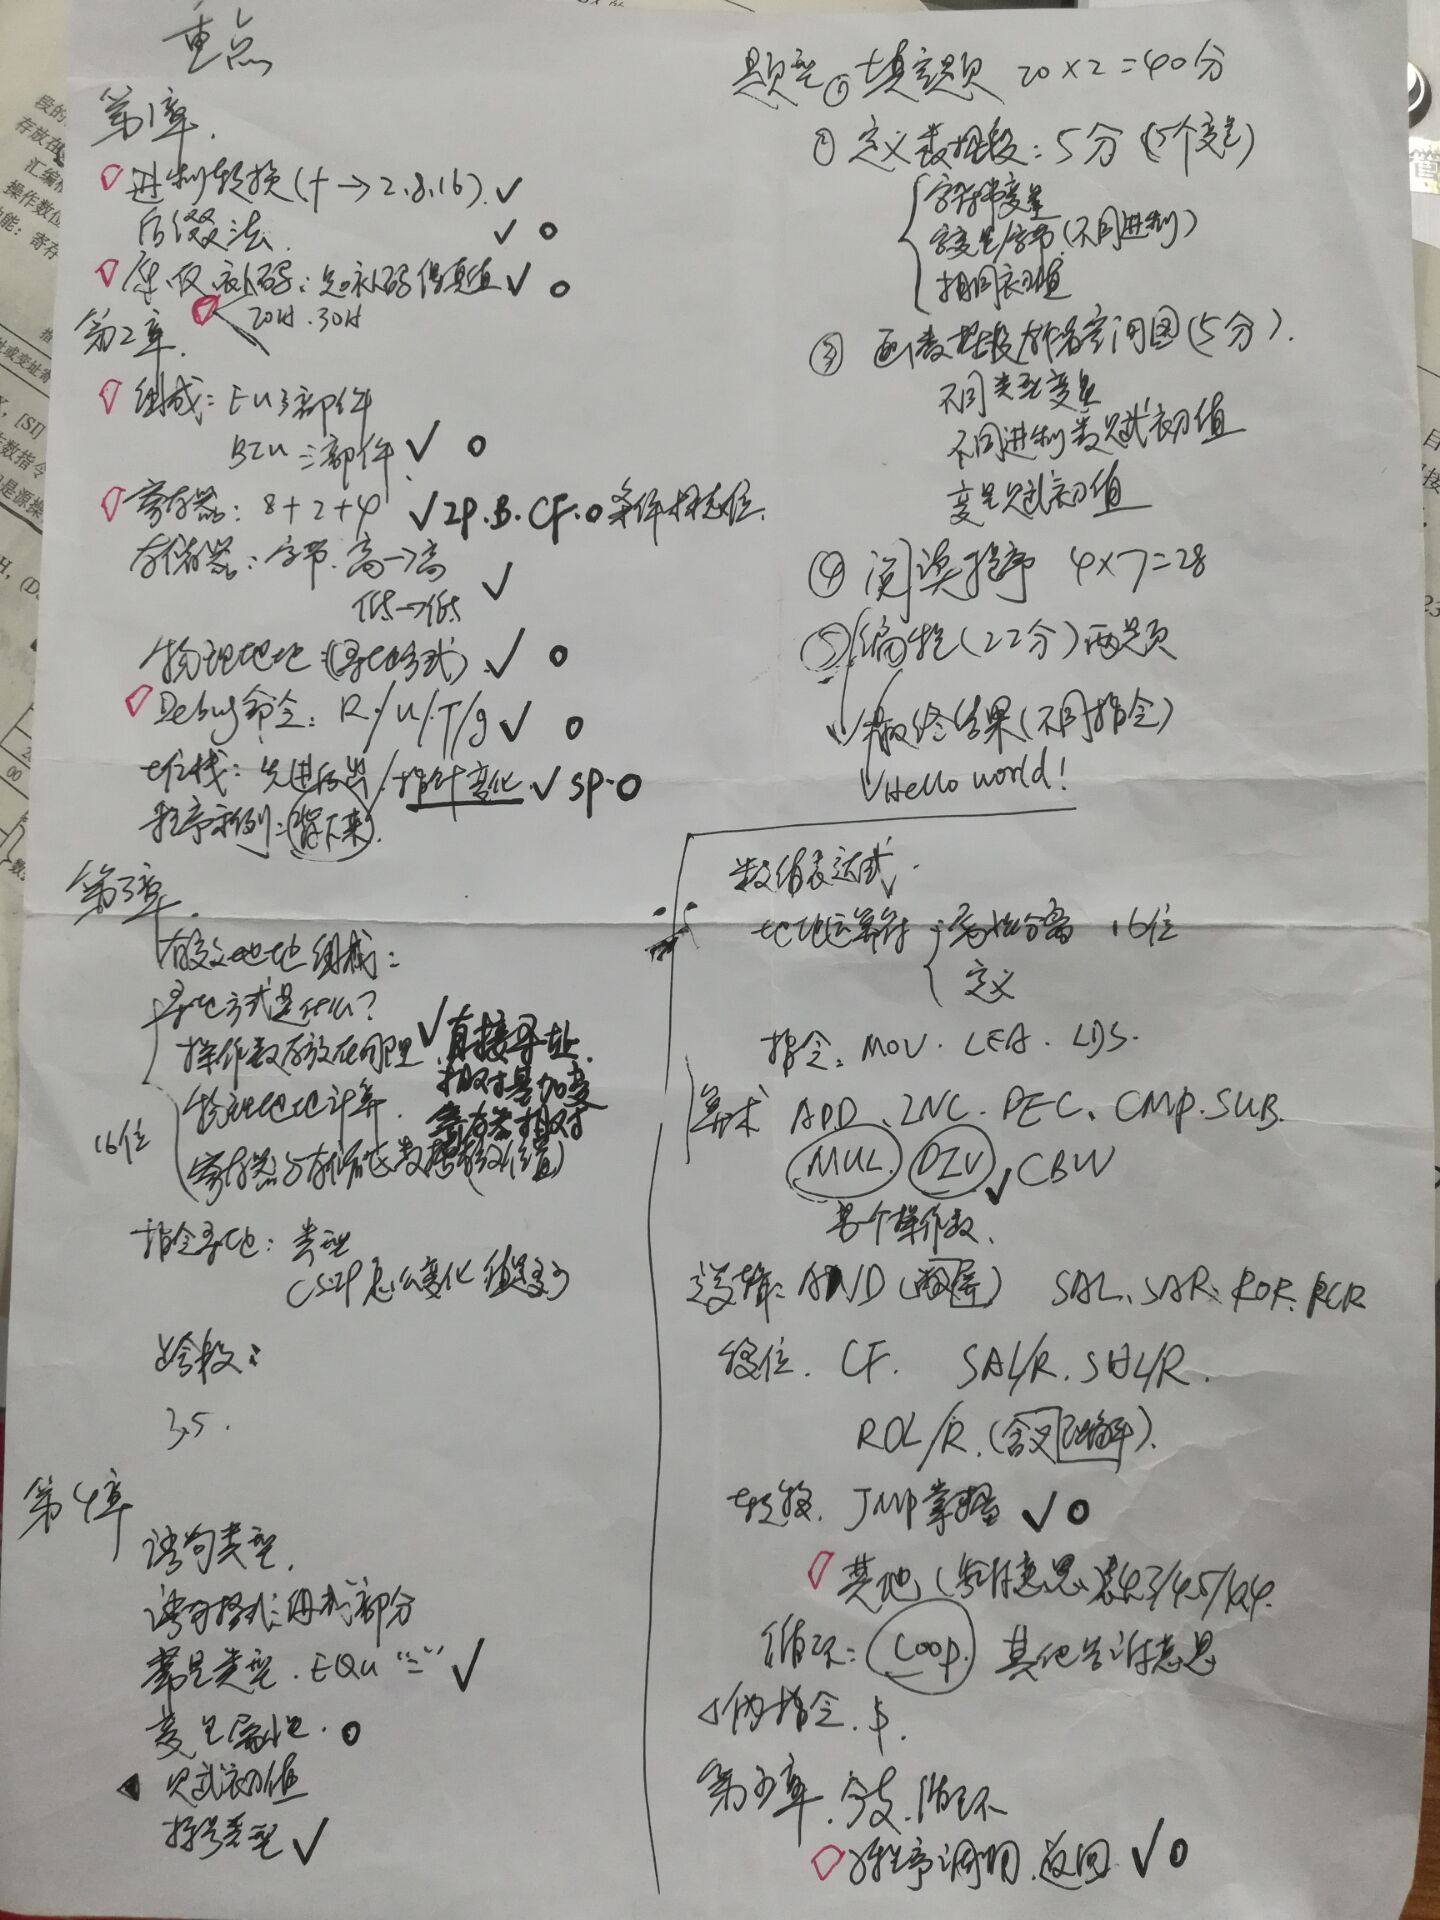 重点
第1章.
进制转换(十→2.8.16).✓
后缀法. ✓ O
原.反.补码:知补码得真值 ✓ O
20H.30H
第2章.
组成: EU 3部件
BIU 三部件 ✓ O
寄存器: 8+2+4 ✓ IP.B.CF.O 条件标志位.
存储器:字节.高→高 ✓
低→低
物理地址(寻址方式) ✓ O
Debug命令: R/U/T/g ✓ O
堆栈:先进后出/指针变化 ✓ SP.O
程序示例:背下来.
第3章.
有效地址组成:
寻址方式是什么?
操作数存放在哪里 ✓ 直接寻址.
相对基加变
物理地址计算. 寄存器相对
16位
寄存器与存储区数据
指令寻址: 类型
CS:IP怎么变化 值是多少
跨段:
3.5.
第4章
语句类型.
语句格式:四部分
常量类型. EQU "=" ✓
变量属性. O
赋初值
符号类型 ✓
题型 ① 填空题 20×2=40分
② 定义数据段: 5分 (5个变量)
字符串变量
字变量/字节(不同进制)
相同初值
③ 画数据段存储空间图(5分).
不同类型变量
不同进制数赋初值
变量赋初值
④ 阅读程序 4×7=28
⑤ 编程(22分)两题
最终结果(不同指令)
Hello world!
数值表达式.
地址运算符: 高低分离 16位
定义
指令: MOV. LEA. LDS.
算术 ADD、INC. DEC、CMP. SUB.
MUL. DIV ✓ CBW
单个操作数.
逻辑: AND(屏蔽) SAL、SAR、ROR、RCR
移位. CF. SAL/R. SHL/R.
ROL/R.(含义理解).
转移. JMP掌握 ✓ O
其他(条件意思)表4.3/4.5/4.4.
循环: Loop. 其他告诉意思
伪指令. $.
第5章. 分支. 循环
子程序调用.返回 ✓ O